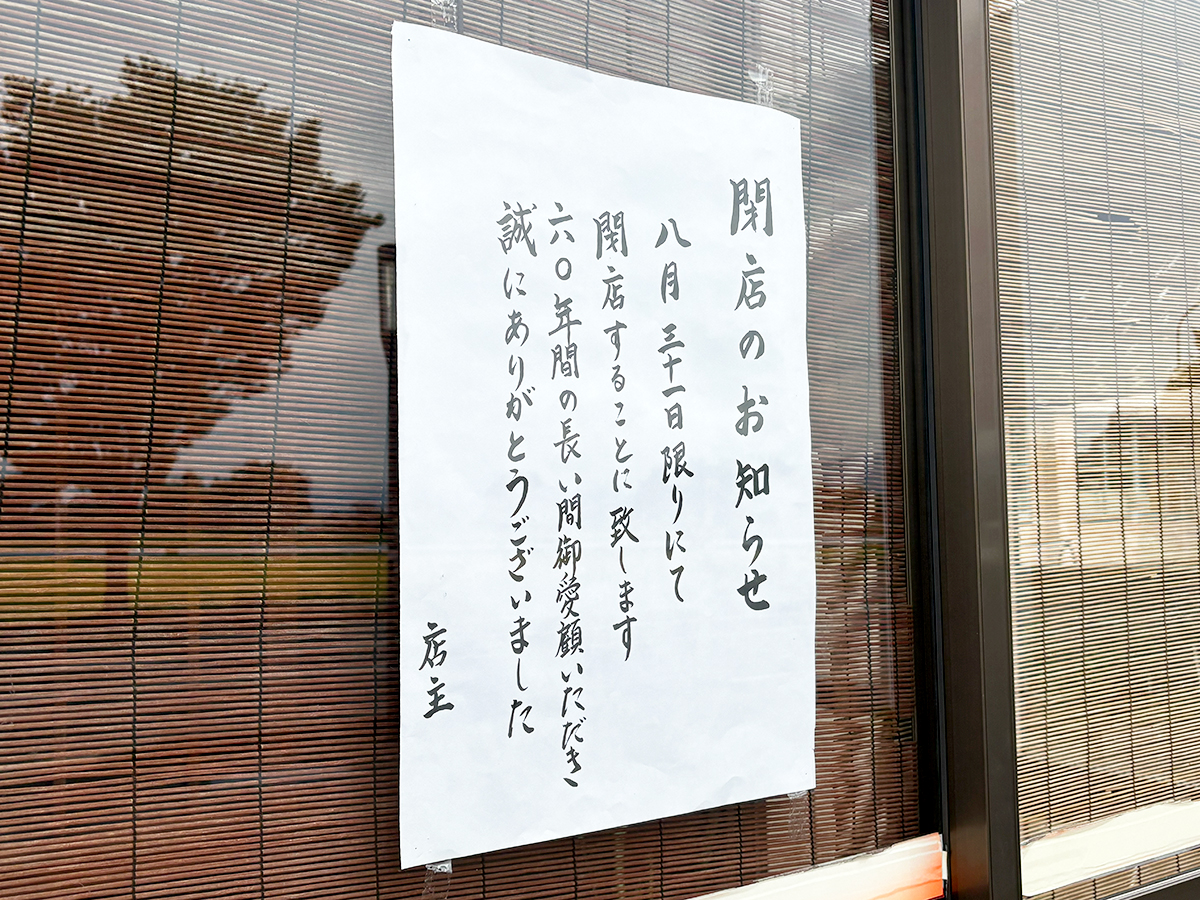 閉店のお知らせ
八月三十一日限りにて
閉店することに致します
六〇年間の長い間御愛顧いただき
誠にありがとうございました
店主